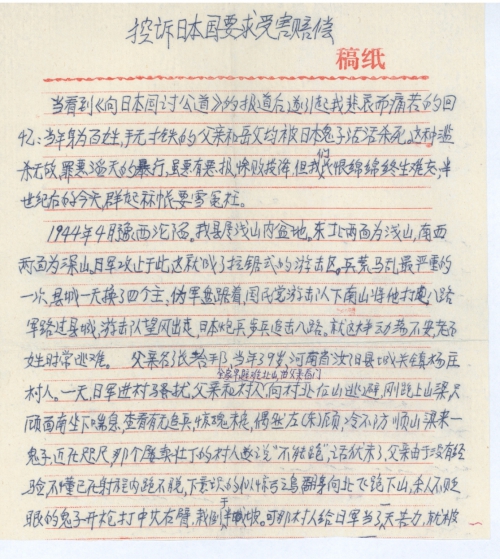 控诉日本国要求受害赔偿
稿纸
当看到《向日本国讨公道》的报道后遂引起我悲哀而痛苦的回
忆：当年身为百姓，手无寸铁的父亲和岳父均被日本鬼子活活杀死。这种滥
杀无故，罪恶滔天的暴行，虽要有恶报，惨败投降，但我们长恨绵绵终生难忘；半
世纪后的今天，
要雪冤枉。
1944年4月豫西沦陷。我县属浅山内盆地。东北两面为浅山，南西
两面为深山，日军攻止于此这就成了拉锯式的游击区。兵荒马乱最严重的
一次，县城一天换了四个主，伪军盘踞着，国民党游击队下南山将他打走，八路
军路过县城，游击队望风出走，日本炮兵步兵追击八路。就这样动荡不安老百
姓时常逃难。 父亲名张
当年39岁，河南省汝阳县城关镇杨庄
村人。一天，日军进村骚扰，父亲和村人向村北
山逃避，刚跑上山梁，只
全家早避难北山，为父看家门
顾西南坐下喘息，查看有无追兵，惊魂未定，偶然左(东)顾，冷不防顺山梁来一
鬼子，近在咫尺，那个
的村人
说“不能跑”，话犹未了，父亲由于没有经
验不懂已在射程内跑不脱，下意识的
惊弓之鸟翻身向北飞跑下山，杀人不眨
眼的鬼子开枪打中其右臂，栽倒于半
坡。可那村人给日军当了
苦力，就被